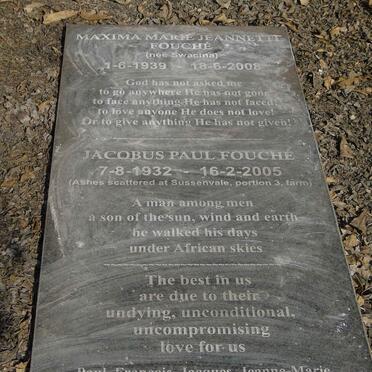 MAXIMA MARIE JEANNETTE
FOUCHÉ
(née Swacina)
1-6-1939 - 18-6-2008
God has not asked me
to go anywhere He has not gone
to face anything He has not faced!
to love anyone He does not love!
Or to give anything He has not given!
JACOBUS PAUL FOUCHÉ
7-8-1932 - 16-2-2005
(Ashes scattered at Sussenvale, portion 3, farm)
A man among men
a son of the sun, wind and earth
he walked his days
under African skies
The best in us
are due to their
undying, unconditional,
uncompromising
love for us
Paul, François, Jacques, Jeanne-Marie